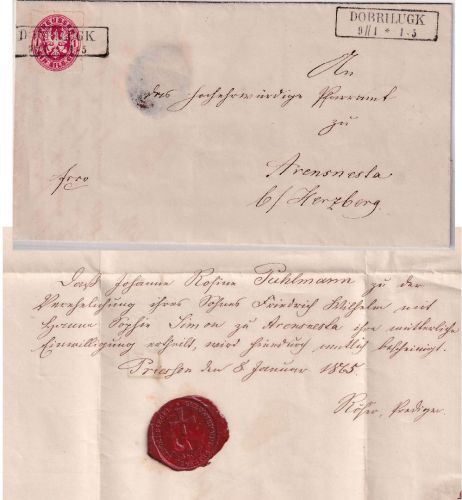 DOBRILUGK
9/1 * 1-5
DOBRILUGK
9/1 * 1-5
An
das hochehrwürdige Pfarramt
zu
Arensnesta
b/Herzberg.
frco
Daß Johanne Rosine Puhlmann zu der
Verehelichung ihres Sohnes Friedrich Wilhelm mit
Sophie Simon zu Arensnesta ihre mütterliche
Einwilligung ertheilt, wird hiedurch amtlich bescheinigt.
Priessen den 8 Januar 1865
Röser, Prediger